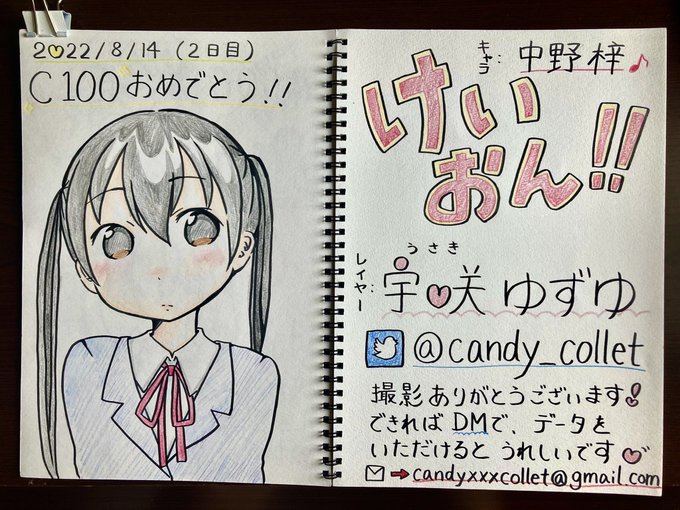 2022/8/14 (2日目)
C100おめでとう!!
キャラ:中野梓♪
けいおん!!
うさき
レイヤー:宇咲ゆずゆ
@candy_collet
撮影ありがとうございます!
できればDMで、データを
いただけるとうれしいです
candyxxxcollet@gmail.com